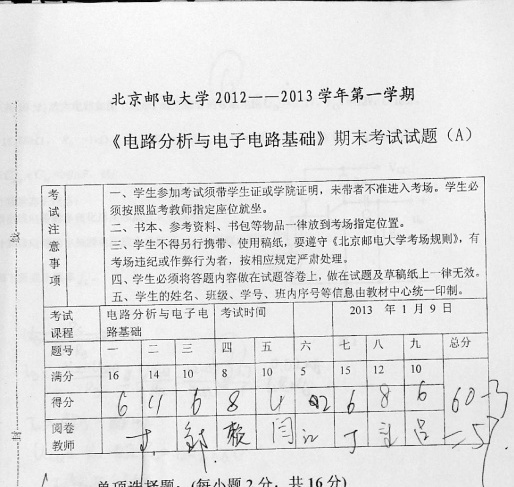 北京邮电大学2012——2013学年第一学期
《电路分析与电子电路基础》期末考试试题（A）
考试注意事项
一、学生参加考试须带学生证或学院证明，未带者不准进入考场。学生必
须按照监考教师指定座位就坐。
二、书本、参考资料、书包等物品一律放到考场指定位置。
三、学生不得另行携带、使用稿纸，要遵守《北京邮电大学考场规则》，有
考场违纪或作弊行为者，按相应规定严肃处理。
四、学生必须将答题内容做在试题答卷上，做在试题及草稿纸上一律无效。
五、学生的姓名、班级、学号、班内序号等信息由教材中心统一印制。
考试课程 电路分析与电子电路基础 考试时间 2013 年 1 月 9 日
题号 一 二 三 四 五 六 七 八 九 总分
满分 16 14 10 8 10 5 15 12 10
得分 6 11 6 8 4 2 6 8 6 60-3
阅卷教师 =57
单项选择题：（每小题2分，共16分）